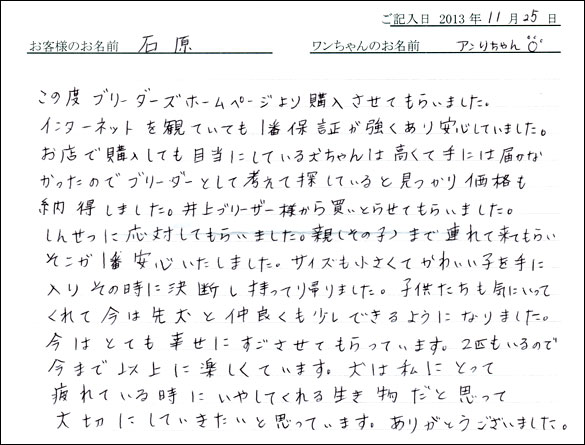 ご記入日 2013年11月25日
お客様のお名前 石原 ワンちゃんのお名前 アンリちゃん
この度ブリーダーズホームページより購入させてもらいました。
インターネットを観ていても1番保証が強くあり安心していました。
お店で購入しても目当にしている犬ちゃんは高くて手には届かな
かったのでブリーダーとして考えて探していると見つかり価格も
納得しました。井上ブリーザー様から買いとらせてもらいました。
しんせつに応対してもらいました。親(その子)まで連れて来てもらい
そこが1番安心いたしました。サイズも小さくてかわいい子を手に
入りその時に決断し持ってり帰りました。子供たちも気にいって
くれて今は先犬と仲良くも少しできるようになりました。
今はとても幸せにすごさせてもらっています。2匹もいるので
今まで以上に楽しくています。犬は私にとって
疲れている時にいやしてくれる生き物だと思って
大切にしていきたいと思っています。ありがとうございました。